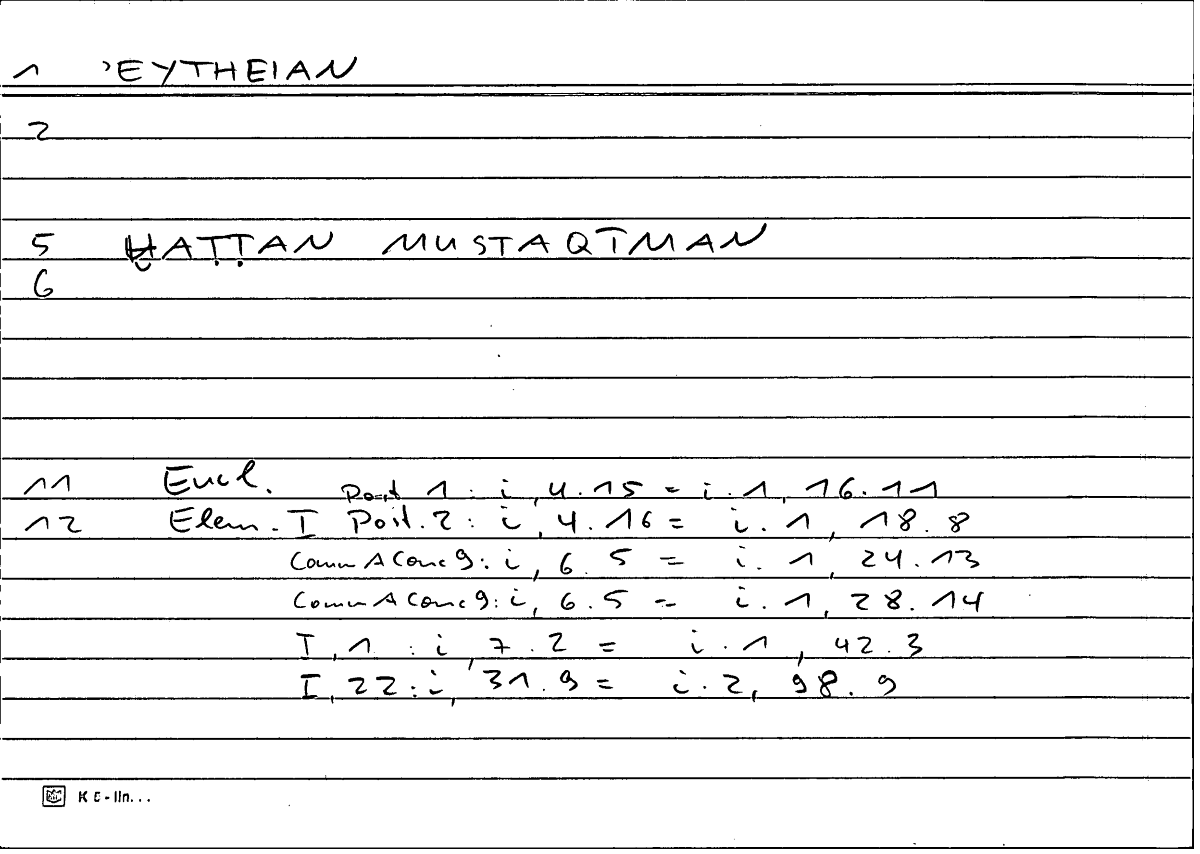 1 ʾEYTHEIAN
2
5 H̱AṬṬAN MUSTAQĪMAN
6
11 Eucl. Post 1 : i, 4.15 = i.1, 16.11
12 Elem. I Post. 2 : i, 4.16 = i.1, 18.8
Comm A Conc 9 : i, 6.5 = i.1, 24.13
Comm A Conc 9 : i, 6.5 = i.1, 28.14
I, 1 : i, 7.2 = i.1, 42.3
I, 22 : i, 31.9 = i.2, 98.9